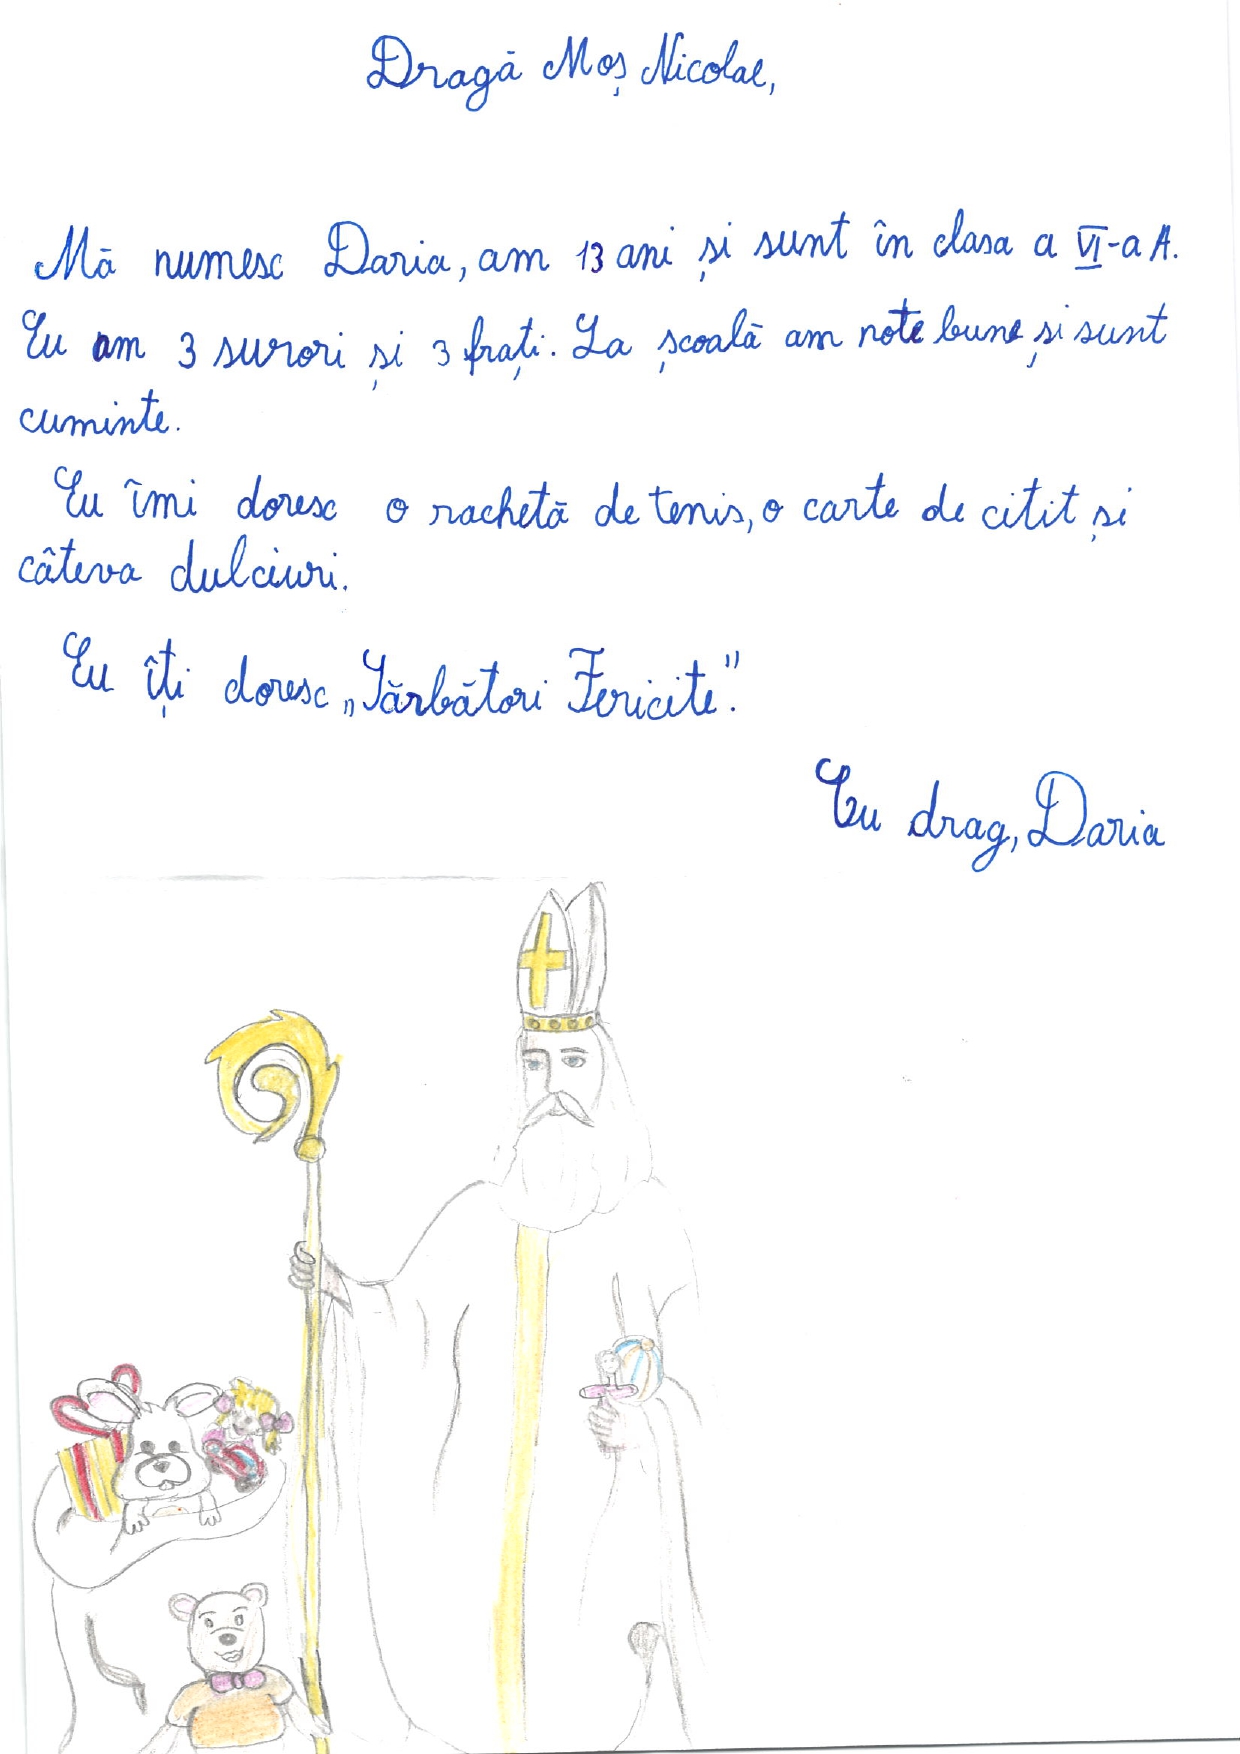 Dragă Moș Nicolae,
Mă numesc Daria, am 13 ani și sunt în clasa a VI-a A.
Eu am 3 surori și 3 frați. La școală am note bune și sunt
cuminte.
Eu îmi doresc o rachetă de tenis, o carte de citit și
câteva dulciuri.
Eu îți doresc „Sărbători Fericite".
Cu drag, Daria